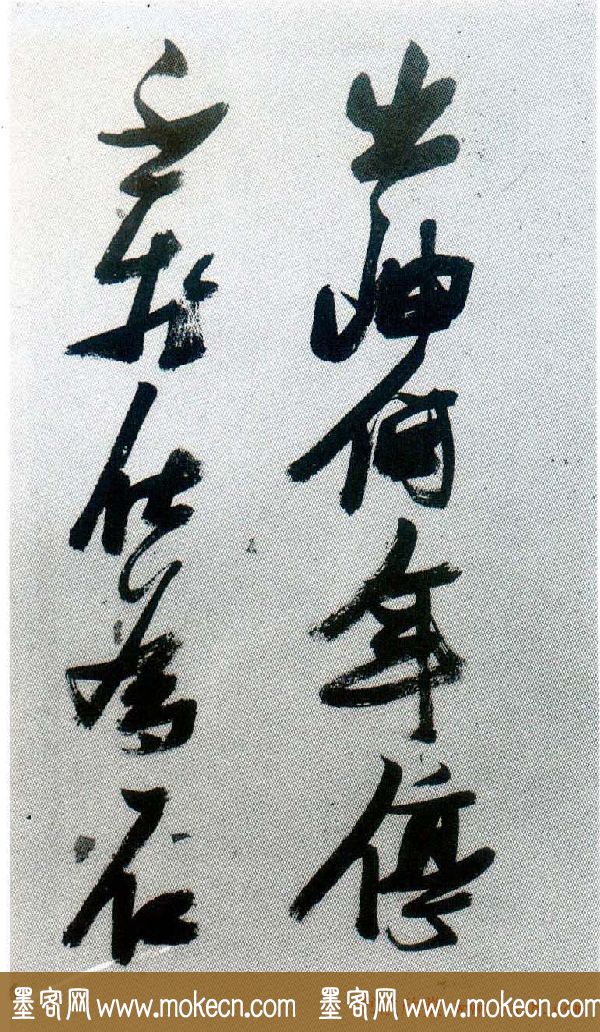 出岫何年停
不 化為石
墨客网 www.mokecn.com 墨客网 www.mokecn.com